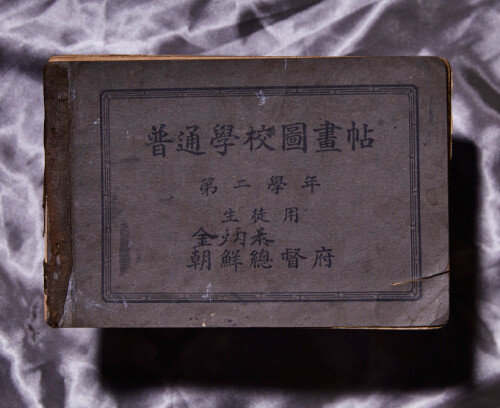 普通學校圖畫帖
第二學年
生徒用
金炳泰
朝鮮總督府